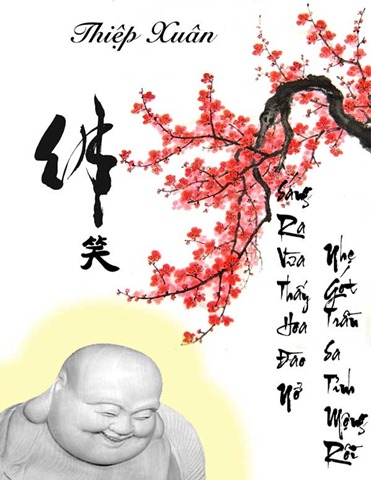 Thiệp Xuân
佛笑
Sáng Ra Vừa Thấy Hoa Đào Nở
Nhẹ Gót Trần Sa Tỉnh Mộng Rồi